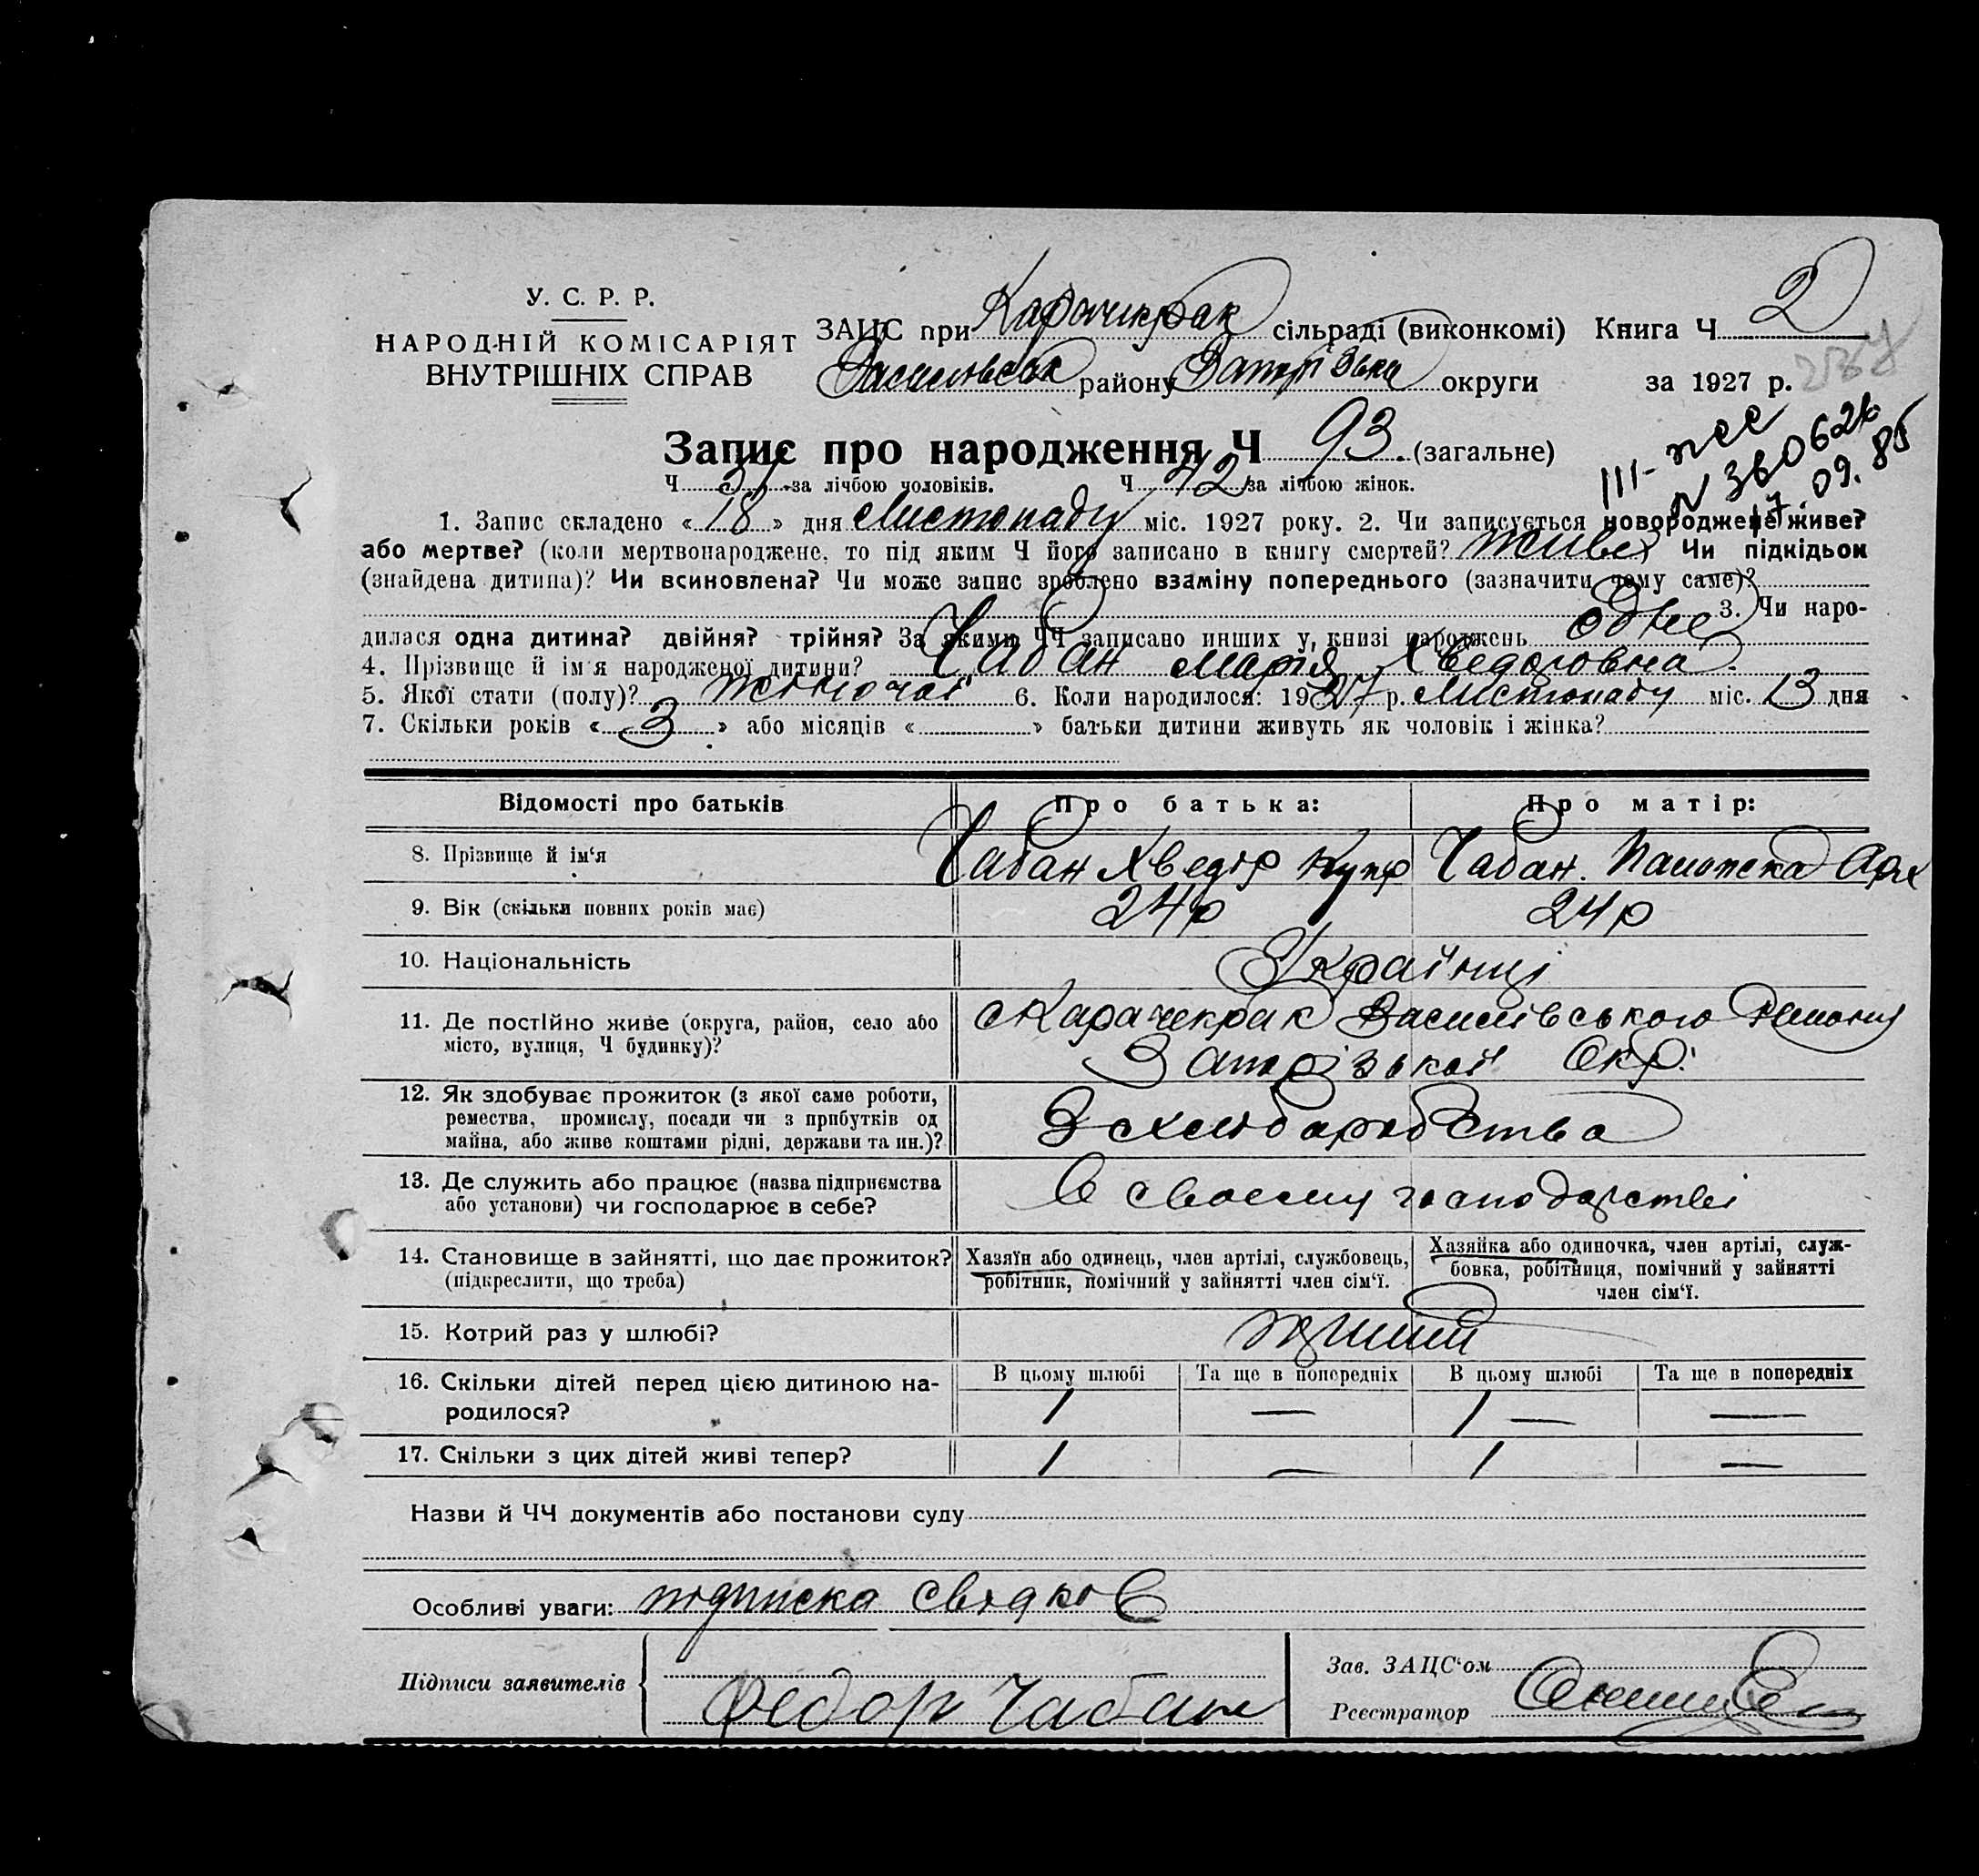 У. С. Р. Р.
НАРОДНІЙ КОМІСАРІЯТ
ВНУТРІШНІХ СПРАВ
ЗАЦС при Карачикрак сільраді (виконкомі) Книга Ч 2
Василівськ району округи за 1927 р.
237
Запис про народження Ч 93. (загальне)
Ч 51 за лічбою чоловіків. Ч 42 за лічбою жінок.
N 360624
17.09.85
1. Запис складено « 18 » дня Листопаду міс. 1927 року. 2. Чи записується новороджене живе?
або мертве? (коли мертвонароджене, то під яким Ч його записано в книгу смертей? живе Чи підкідьок
(знайдена дитина)? Чи всиновлена? Чи може запис зроблено взаміну попереднього (зазначити чому саме)?
3. Чи наро-
дилася одна дитина? двійня? трійня? За якими ЧЧ записано инших у книзі народжень одне
4. Прізвище й ім'я народженої дитини? Чабан Марія Хведоровна
5. Якої стати (полу)? жіночої 6. Коли народилося: 1927 р. Листопаду міс. 13 дня
7. Скільки років « 3 » або місяців « » батьки дитини живуть як чоловік і жінка?
Відомості про батьків Про батька: Про матір:
8. Прізвище й ім'я Чабан Хведір Купр Чабан.
9. Вік (скільки повних років має) 24р 24р
10. Національність Українці
11. Де постійно живе (округа, район, село або
місто, вулиця, Ч будинку)?
с Карачекрак Василівського Району
Запорізької Окр.
12. Як здобуває прожиток (з якої саме роботи,
ремества, промислу, посади чи з прибутків од
майна, або живе коштами рідні, держави та ин.)?
З схлібаробства
13. Де служить або працює (назва підприємства
або установи) чи господарює в себе?
В своєму господарстві
14. Становище в зайнятті, що дає прожиток?
(підкреслити, що треба)
Хазяїн або одинець, член артілі, службовець,
робітник, помічний у зайнятті член сім'ї.
Хазяйка або одиночка, член артілі, служ-
бовка, робітниця, помічний у зайнятті
член сім'ї.
15. Котрий раз у шлюбі?
16. Скільки дітей перед цією дитиною на-
родилося?
В цьому шлюбі Та ще в попередніх В цьому шлюбі Та ще в попередніх
1 — 1 — —
17. Скільки з цих дітей живі тепер? 1 — 1 —
Назви й ЧЧ документів або постанови суду
Особливі уваги: підписка свідков
Підписи заявителів
Федор Чабан
Зав. ЗАЦС'ом
Реєстратор